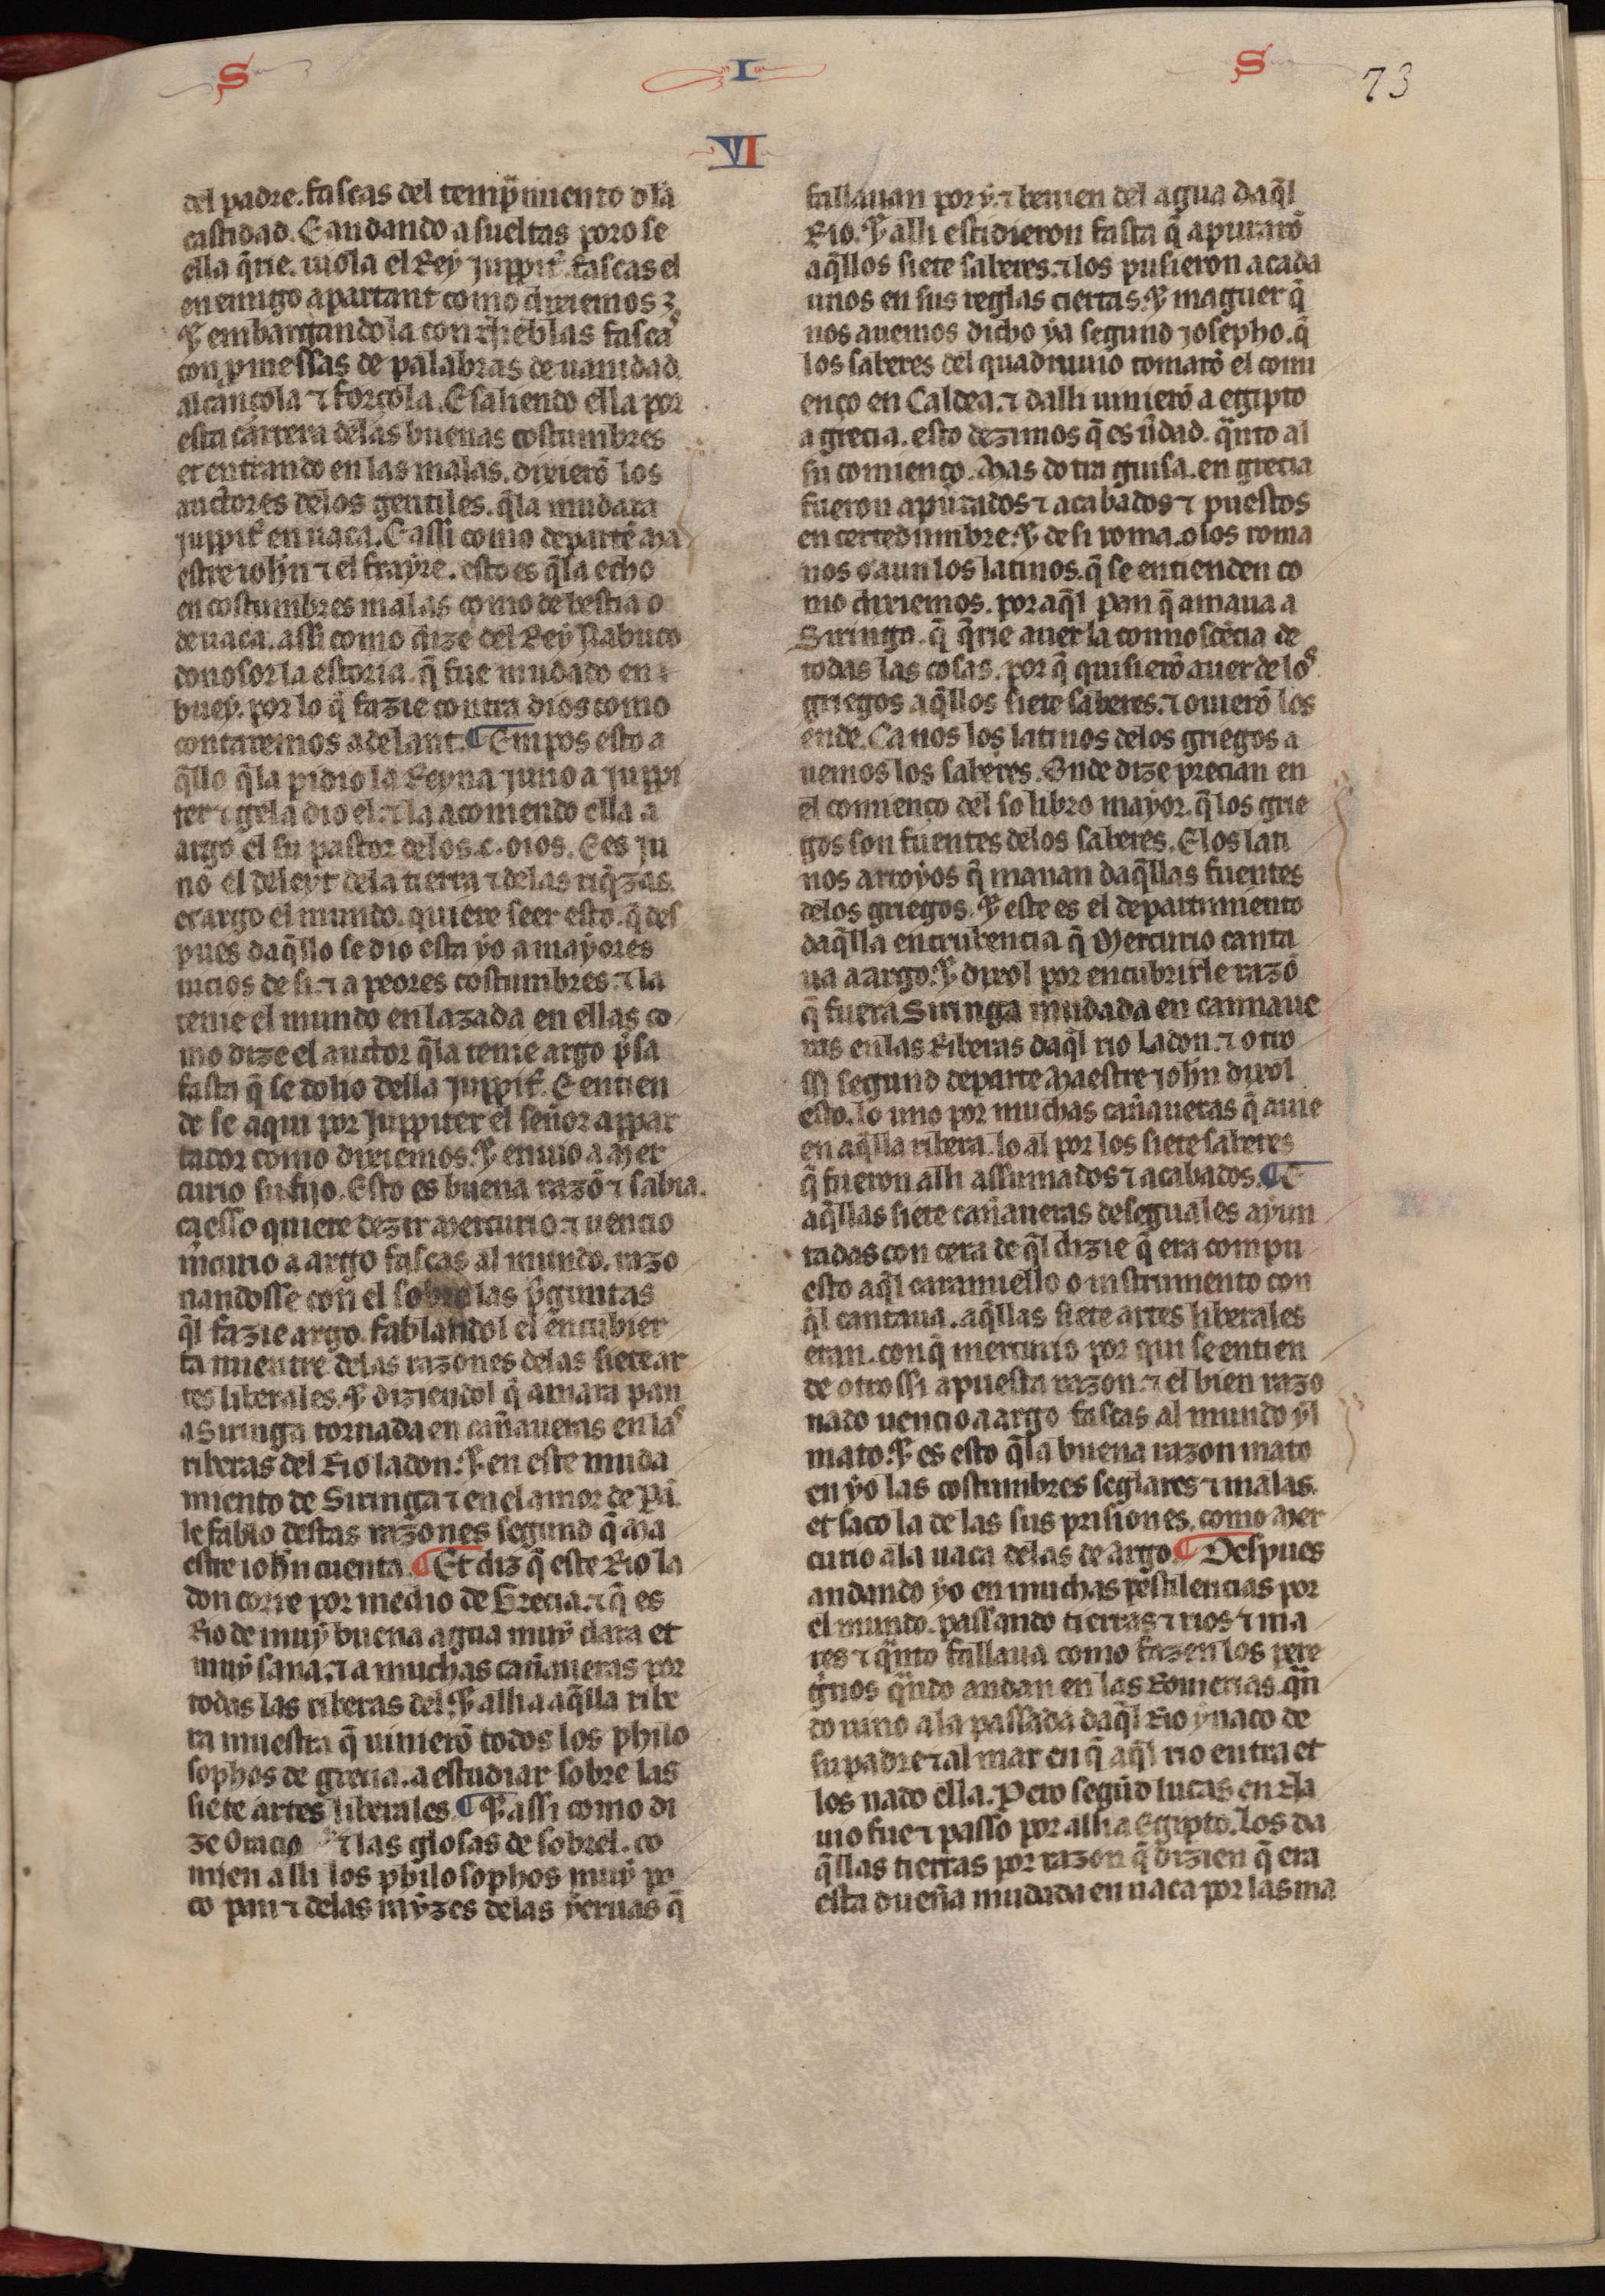 S I S
73
VI
del padre. fascas del temp̃miento dla
castidad. E andando a sueltas poro se
ella q̃rie. uiola el Rey juppit̃. fascas el
enemigo apartant como diremos
⁊ embargandola con nieblas fascas
con p̃messas de palabras de uanidad.
alcançola ⁊ forçola. E saliendo ella por
esta carrera delas buenas costumbres
et entrando en las malas. dixierõ los
auctores delos gentiles. q̃la mudara
juppit̃ en uaca. E assi como departẽ ma
estre ioh̃n ⁊ el frayre. esto es q̃la echo
en costumbres malas como de bestia o
de uaca. assi como dize del Rey Nabuco
donosor la estoria. q̃ fue mudado en
buey. por lo q̃ fazie contra dios como
contaremos adelant. ¶ Empos esto a
q̃llo q̃la pidio la Reyna juno a juppi
ter ⁊ gela dio el. ⁊ la acomendo ella a
argo el su pastor delos .c. oios. E es ju
no el deleyt dela tierra ⁊ delas riq̃zas.
et argo el mundo. quiere seer esto. q̃ des
pues daq̃llo se dio esta yo a mayores
uicios de si. ⁊ a peores costumbres. ⁊ la
tenie el mundo enlazada en ellas co
mo dize el auctor q̃la tenie argo p̃sa
fasta q̃ se dolio della juppit̃. E entien
de se aqui por Juppiter el señor appar
tador como diremos. ⁊ enuio a mer
curio su fijo. Esto es buena razõ ⁊ sabia.
ca esso quiere dezir mercurio. ⁊ uencio
m̃curio a argo fascas al mundo. razo
nandosse con el sobre las p̃guntas
q̃l fazie argo. fablandol el encubier
ta mientre delas razones delas siete ar
tes liberales. ⁊ diziendol q̃ amara pan
a Siringa tornada en cañaueras en las
riberas del Rio ladon. ⁊ en este muda
miento de Siringa ⁊ en el amor de pã.
le fablo destas razones segund q̃ ma
estre ioh̃n cuenta. ¶ Et diz q̃ este Rio la
don corre por medio de Grecia. ⁊ q̃ es
Rio de muy buena agua muy clara et
muy sana. ⁊ a muchas cañaueras por
todas las riberas del. ⁊ alli a aq̃lla ribe
ra muestra q̃ uinierõ todos los philo
sophos de grecia. a estudiar sobre las
siete artes liberales. ¶ ⁊ assi como di
ze Oracio ⁊ las glosas de sobrel. co
mien alli los philosophos muy po
co pan ⁊ delas rayzes delas yeruas q̃
fallauan por y. ⁊ beuien del agua daq̃l
Rio. ⁊ alli estidieron fasta q̃ apurarõ
aq̃llos siete saberes. ⁊ los pusieron a cada
unos en sus reglas ciertas. ⁊ maguer q̃
nos auemos dicho ya segund josepho. q̃
los saberes del quadruuio tomarõ el comi
enço en Caldea. ⁊ dalli uinierõ a egipto
a grecia. esto dezimos q̃ es ũdad. q̃nto al
su comienço. Mas dotra guisa. en grecia
fueron apurados ⁊ acabados ⁊ puestos
en certedumbre. ⁊ de si roma. o los roma
nos o aun los latinos. q̃ se entienden co
mo diriemos. por aq̃l pan q̃ amaua a
Siringa. q̃ q̃rie auer la connoscẽcia de
todas las cosas. por q̃ quisierõ auer de los
griegos aq̃llos siete saberes. ⁊ ouierõ los
ende. Ca nos los latinos delos griegos a
uemos los saberes. Onde dize precian en
el comienço del so libro mayor. q̃ los grie
gos son fuentes delos saberes. E los lati
nos arroyos q̃ manan daq̃llas fuentes
delos griegos. ⁊ este es el departimiento
daq̃lla encrubencia q̃ Mercurio canta
ua a argo. ⁊ dixol por encubrirle razõ
q̃ fuera Siringa mudada en cannaue
ras en las Riberas daq̃l rio ladon. ⁊ otro
ssi segund departe maestre joh̃n dixol
esto. lo uno por muchas cañaueras q̃ auie
en aq̃lla ribera. lo al por los siete saberes
q̃ fueron alli assumados ⁊ acabados. ¶ E
aq̃llas siete cañaueras deseguales ayun
tadas con cera de q̃l dizie q̃ era compu
esto aq̃l caramiello o instrumento con
q̃l cantaua. aq̃llas siete artes liberales
eran. con q̃ mercurio por qui se entien
de otrossi apuesta razon. ⁊ el bien razo
nado uencio a argo fascas al mundo yl
mato. ⁊ es esto q̃la buena razon mato
en yo las costumbres seglares ⁊ malas.
et saco la de las sus prisiones. como mer
curio ala uaca delas de argo. ¶ Despues
andando yo en muchas pestilencias por
el mundo. passando tierras ⁊ rios ⁊ ma
res ⁊ q̃nto fallaua como fazen los pere
g̃nos q̃ndo andan en las Romerias. q̃n
do uino ala passada daq̃l Rio ynaco de
su padre ⁊ al mar en q̃ aq̃l rio entra et
los nado ella. Pero segũd lucas en Na
uio fue ⁊ passo por alli a Egipto. los da
q̃llas tierras por razon q̃ dizien q̃ era
esta dueña mudada en uaca por las ma